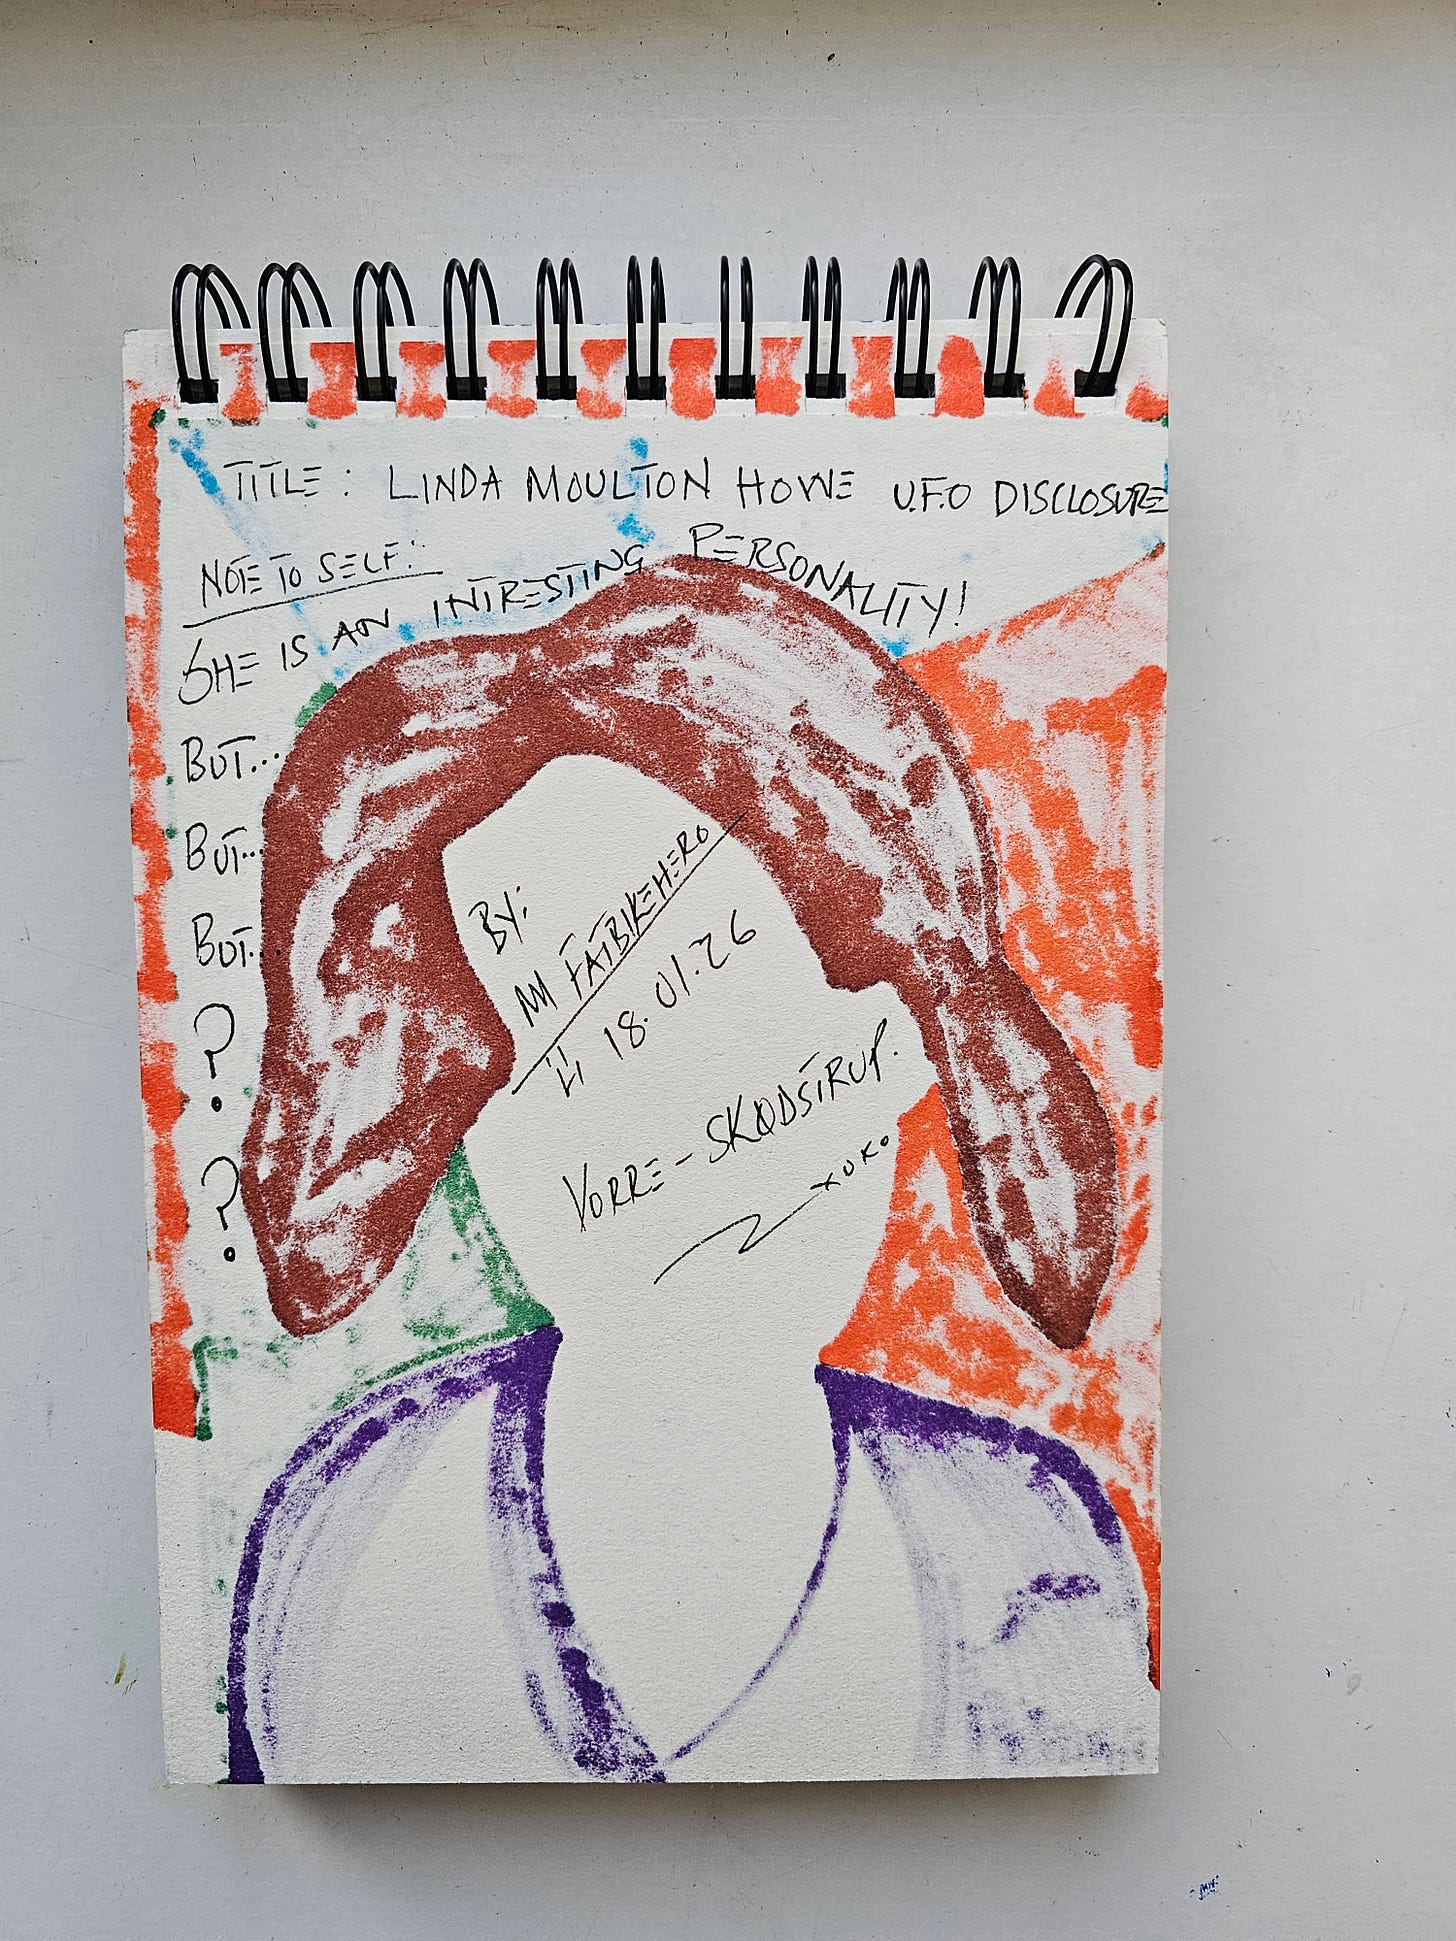 TITLE: LINDA MOULTON HOWE U.F.O DISCLOSURE
NOTE TO SELF:
SHE IS AN INTRESTING PERSONALITY!
BUT...
BUT...
BUT...
?
?
BY:
FATBIKEHERO
18.01.26
VORRE-SKØDSTRUP.
XOXO